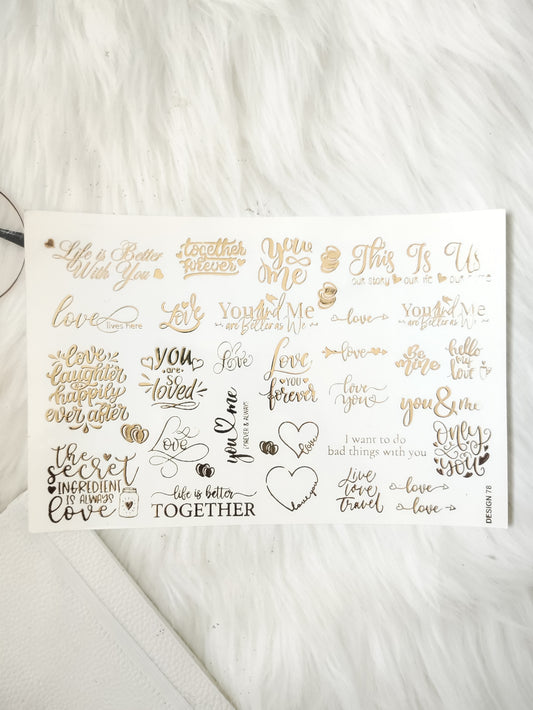 Life is Better
With You
together
forever
You
&
me
This Is Us
our story our life our home
love
lives here
Love
You and Me
are Better as We
love
You and Me
are Better as We
love
laughter
& happily
ever after
you
are
so
loved
Love
Love
YOU
forever
love
Be
mine
hello
my
love
love
you
you & me
Love
you & me
FOREVER & ALWAYS
love
I want to do
bad things with you
Only
you
the
secret
INGREDIENT
IS ALWAYS
love
life is better
TOGETHER
love you
Live
Love
Travel
love
love
DESIGN 78